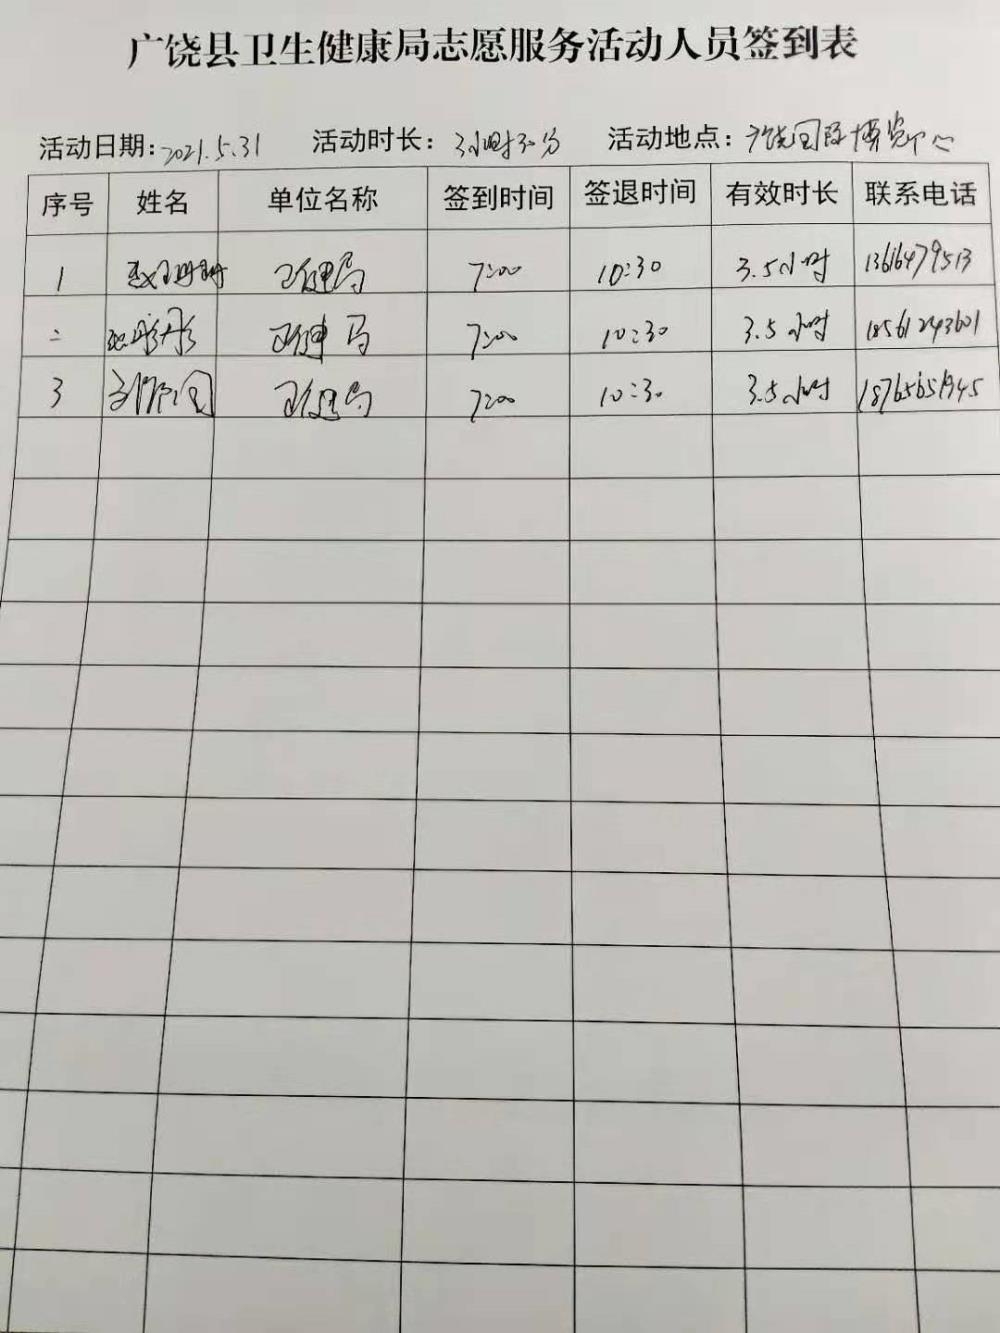 广饶县卫生健康局志愿服务活动人员签到表
活动日期：2021.5.31 活动时长：3小时30分 活动地点：广饶国际博览中心
序号 姓名 单位名称 签到时间 签退时间 有效时长 联系电话
1 赵珊珊 卫健局 7:00 10:30 3.5小时 13616479513
二 彤彤 卫健局 7:00 10:30 3.5小时 18561243601
3 卫健局 7:00 10:30 3.5小时 18765651945